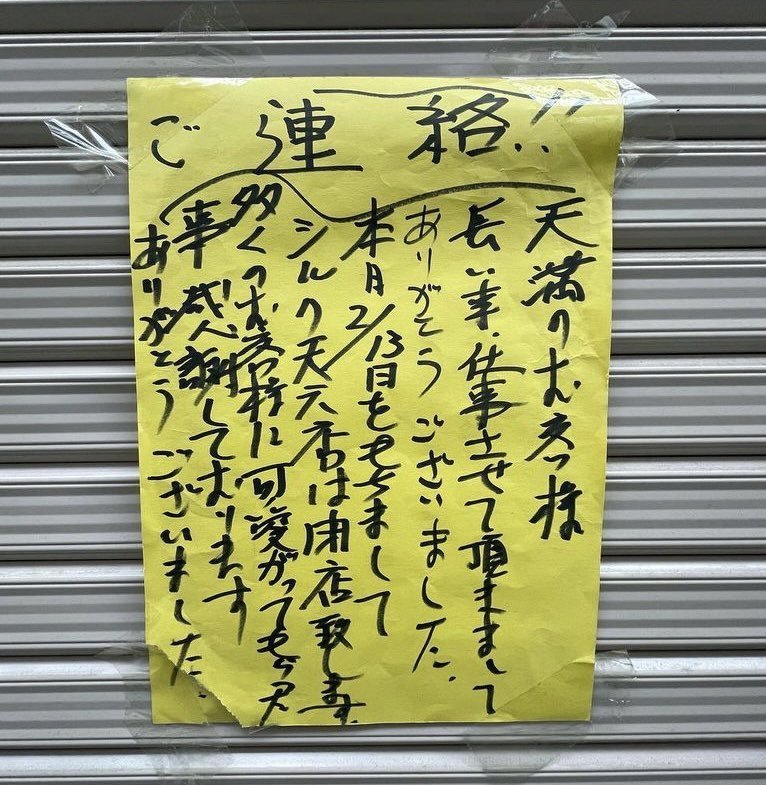 ご連絡!!
天満のお客様
長い事、仕事させて頂まして
ありがとうございました。
本月2/13日をもちまして
シルク天六店は閉店致します
多くのお客様に可愛がってもらえ
事感謝しております
ありがとうございました。